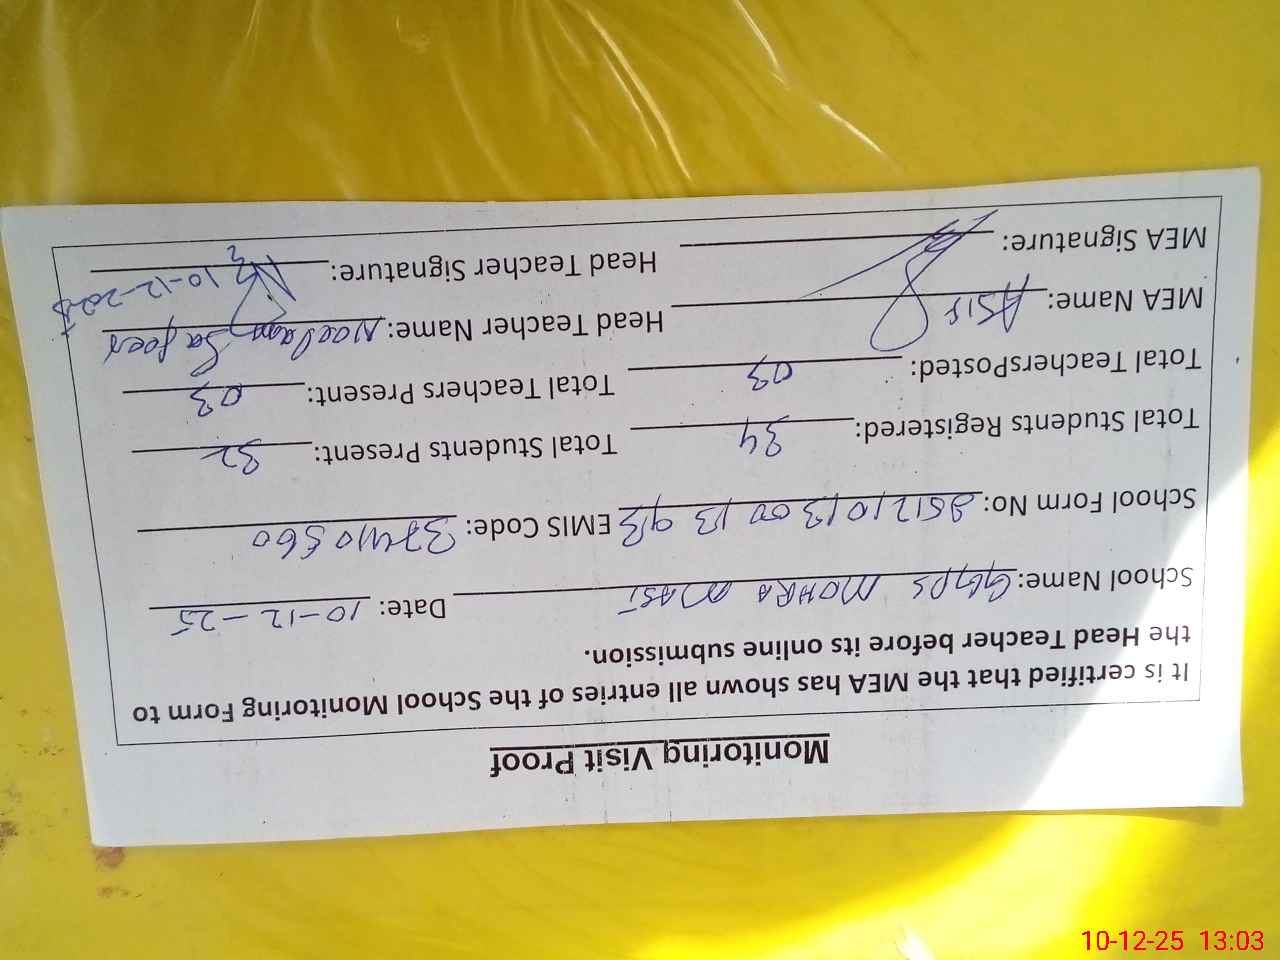 Monitoring Visit Proof
It is certified that the MEA has shown all entries of the School Monitoring Form to
the Head Teacher before its online submission.
School Name: GGPS MOHRA MAST Date: 10-12-25
School Form No: EMIS Code: 37410560
Total Students Registered: 34 Total Students Present: 32
Total TeachersPosted: 03 Total Teachers Present: 03
MEA Name: ASIF Head Teacher Name: Neelam
MEA Signature: Head Teacher Signature: 10-12-2025
10-12-25 13:03